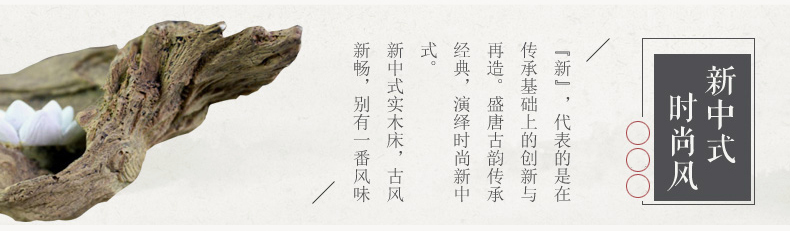 新中式
时尚风
『新』，代表的是在
传承基础上的创新与
再造。盛唐古韵传承
经典，演绎时尚新中
式。
新中式实木床，古风
新畅，别有一番风味